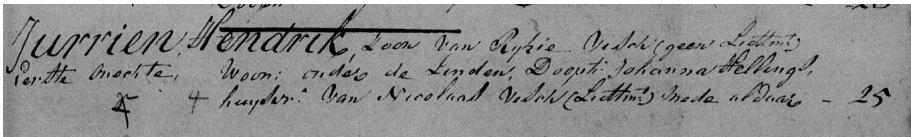 Jurrien Hendrik, Zoon van Rykie Visch (geen Lidtmt.)
Eerste onechte, Woon: onder de Linden, Doopt: Johanna Hellings,
huysvr. van Nicolaas Visch (Lidtmt.) mede aldaar - 25